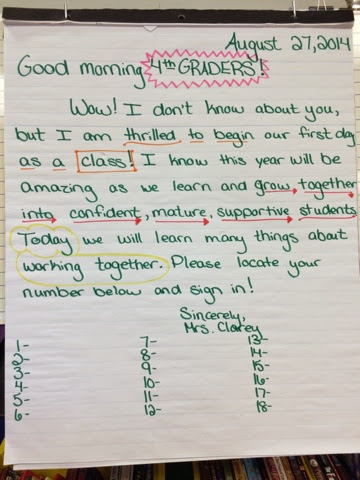 August 27, 2014
Good morning 4th GRADERS!
Wow! I don't know about you,
but I am thrilled to begin our first day
as a class! I know this year will be
amazing as we learn and grow together
into confident, mature, supportive students
Today we will learn many things about
working together. Please locate your
number below and sign in!
Sincerely,
Mrs. Clarey
1-
2-
3-
4-
5-
6-
7-
8-
9-
10-
11-
12-
13-
14-
15-
16-
17-
18-